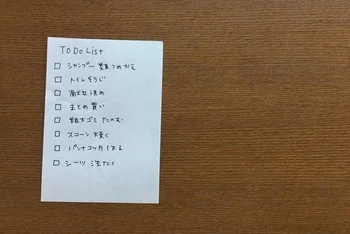 TO DO List
□ シャンプー 詰めかえ
□ トイレそうじ
□ 献立決め
□ まとめ買い
□ 粗大ゴミ たのむ
□ スコーン 焼く
□ パンナコッタ
□ シーツ 洗たく